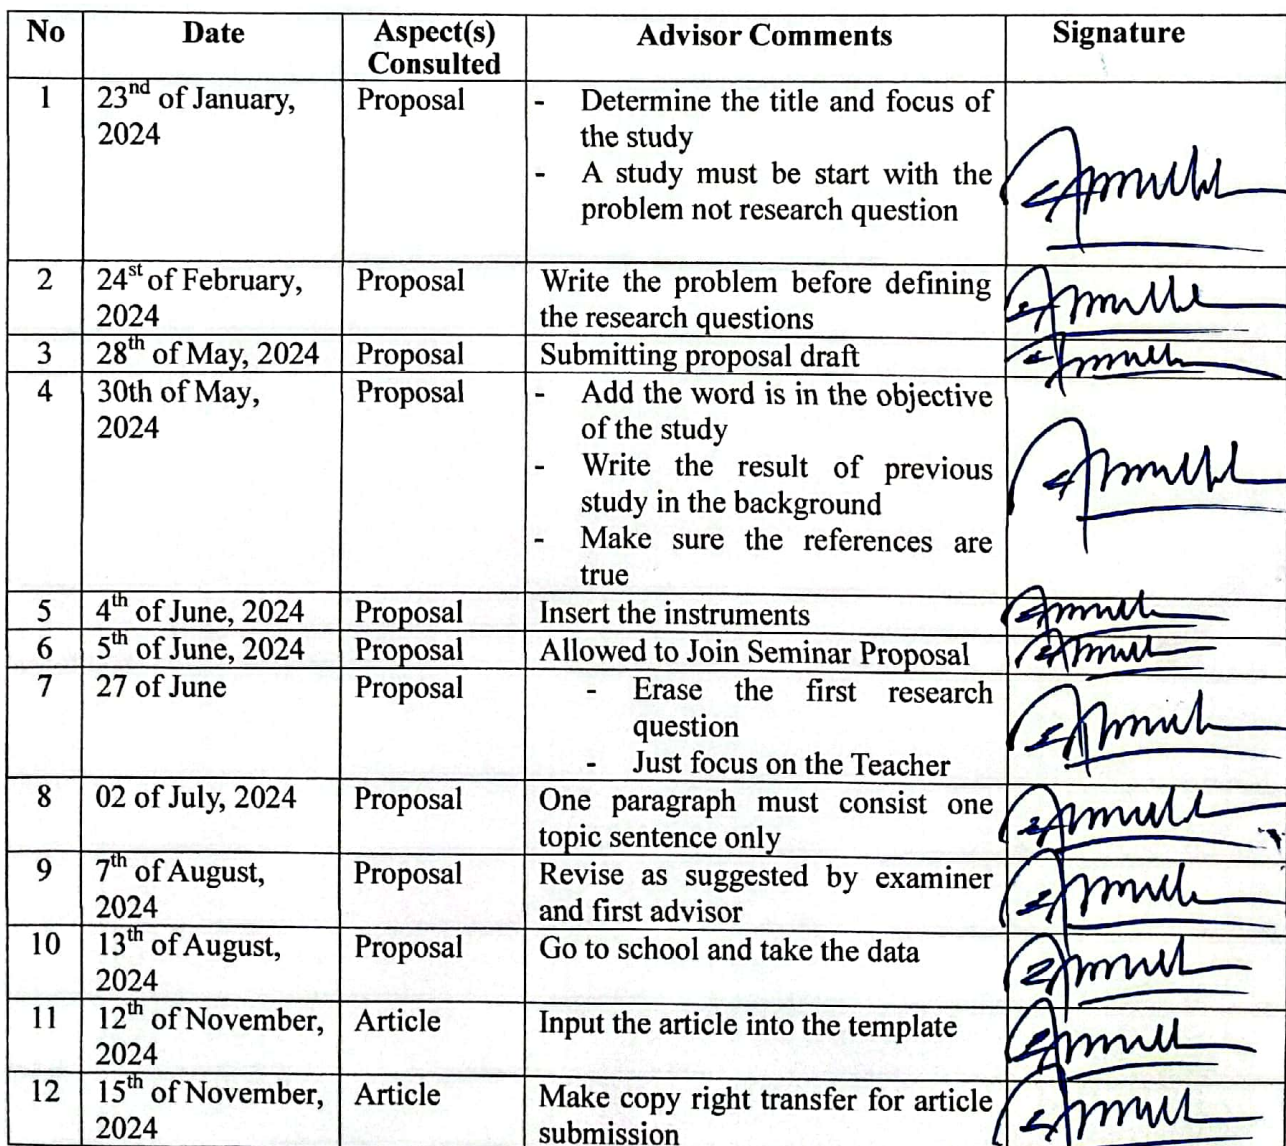 No Date Aspect(s) Consulted Advisor Comments Signature
1 23nd of January, 2024 Proposal - Determine the title and focus of
the study
- A study must be start with the
problem not research question
2 24st of February, 2024 Proposal Write the problem before defining
the research questions
3 28th of May, 2024 Proposal Submitting proposal draft
4 30th of May, 2024 Proposal - Add the word is in the objective
of the study
- Write the result of previous
study in the background
- Make sure the references are
true
5 4th of June, 2024 Proposal Insert the instruments
6 5th of June, 2024 Proposal Allowed to Join Seminar Proposal
7 27 of June Proposal - Erase the first research
question
- Just focus on the Teacher
8 02 of July, 2024 Proposal One paragraph must consist one
topic sentence only
9 7th of August, 2024 Proposal Revise as suggested by examiner
and first advisor
10 13th of August, 2024 Proposal Go to school and take the data
11 12th of November, 2024 Article Input the article into the template
12 15th of November, 2024 Article Make copy right transfer for article
submission